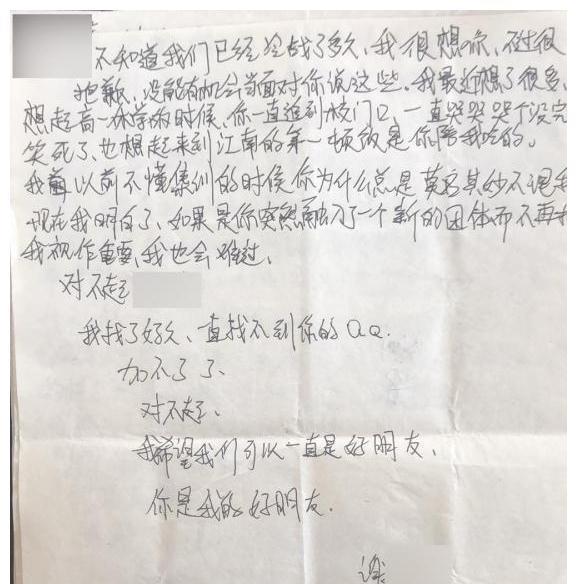 不知道我们已经冷战了多久,我很想你,不过很
抱歉,没能有机会当面对你说这些。我最近想了很多,
想起高一休学的时候,你一直追到校门口,一直哭哭哭个没完
笑死了,也想起来到江南的第一顿饭是你陪我吃的。
我以前不懂集训的时候你为什么总是莫名其妙不理我
现在我明白了,如果是你突然融入了一个新的团体而不再把
我视作重要,我也会难过,
对不起
我找了好久、直找不到你的QQ.
加不了了、
对不起、
我希望我们可以一直是好朋友,
你是我的好朋友.